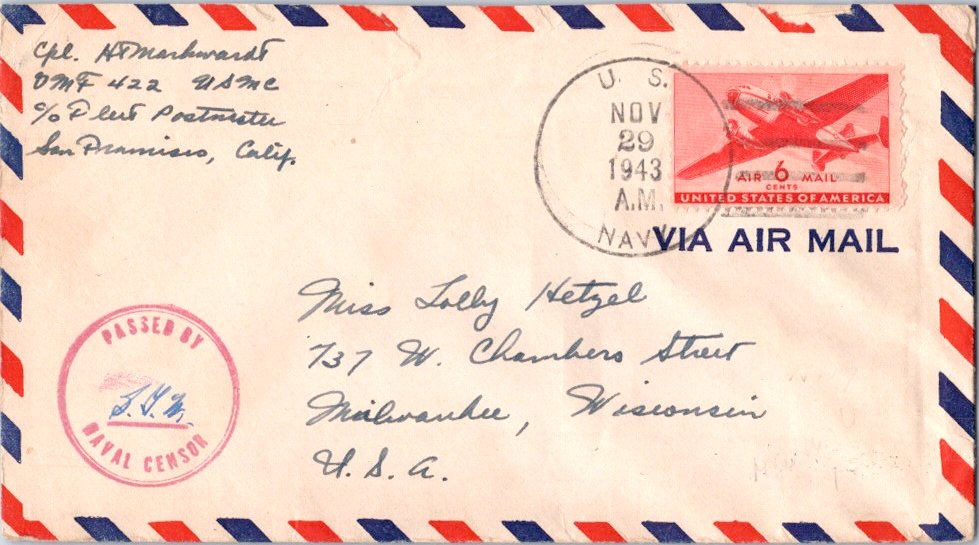 Cpl. H Markwardt
VMF 422 USMC
c/o Fleet Postmaster
San Francisco, Calif.
U. S.
NOV
29
1943
A.M.
NAVY
AIR 6 MAIL
CENTS
UNITED STATES OF AMERICA
VIA AIR MAIL
Miss Lolly Hetzel
737 W. Chambers Street
Milwaukee, Wisconsin
U. S. A.
PASSED BY
NAVAL CENSOR